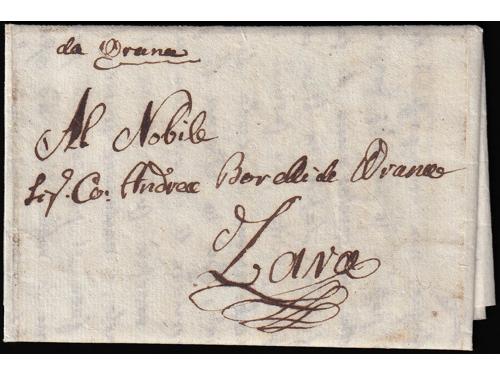 da Vrana
Al Nobile
Sig.r Co: Andrea Borelli de Vrana
Zara